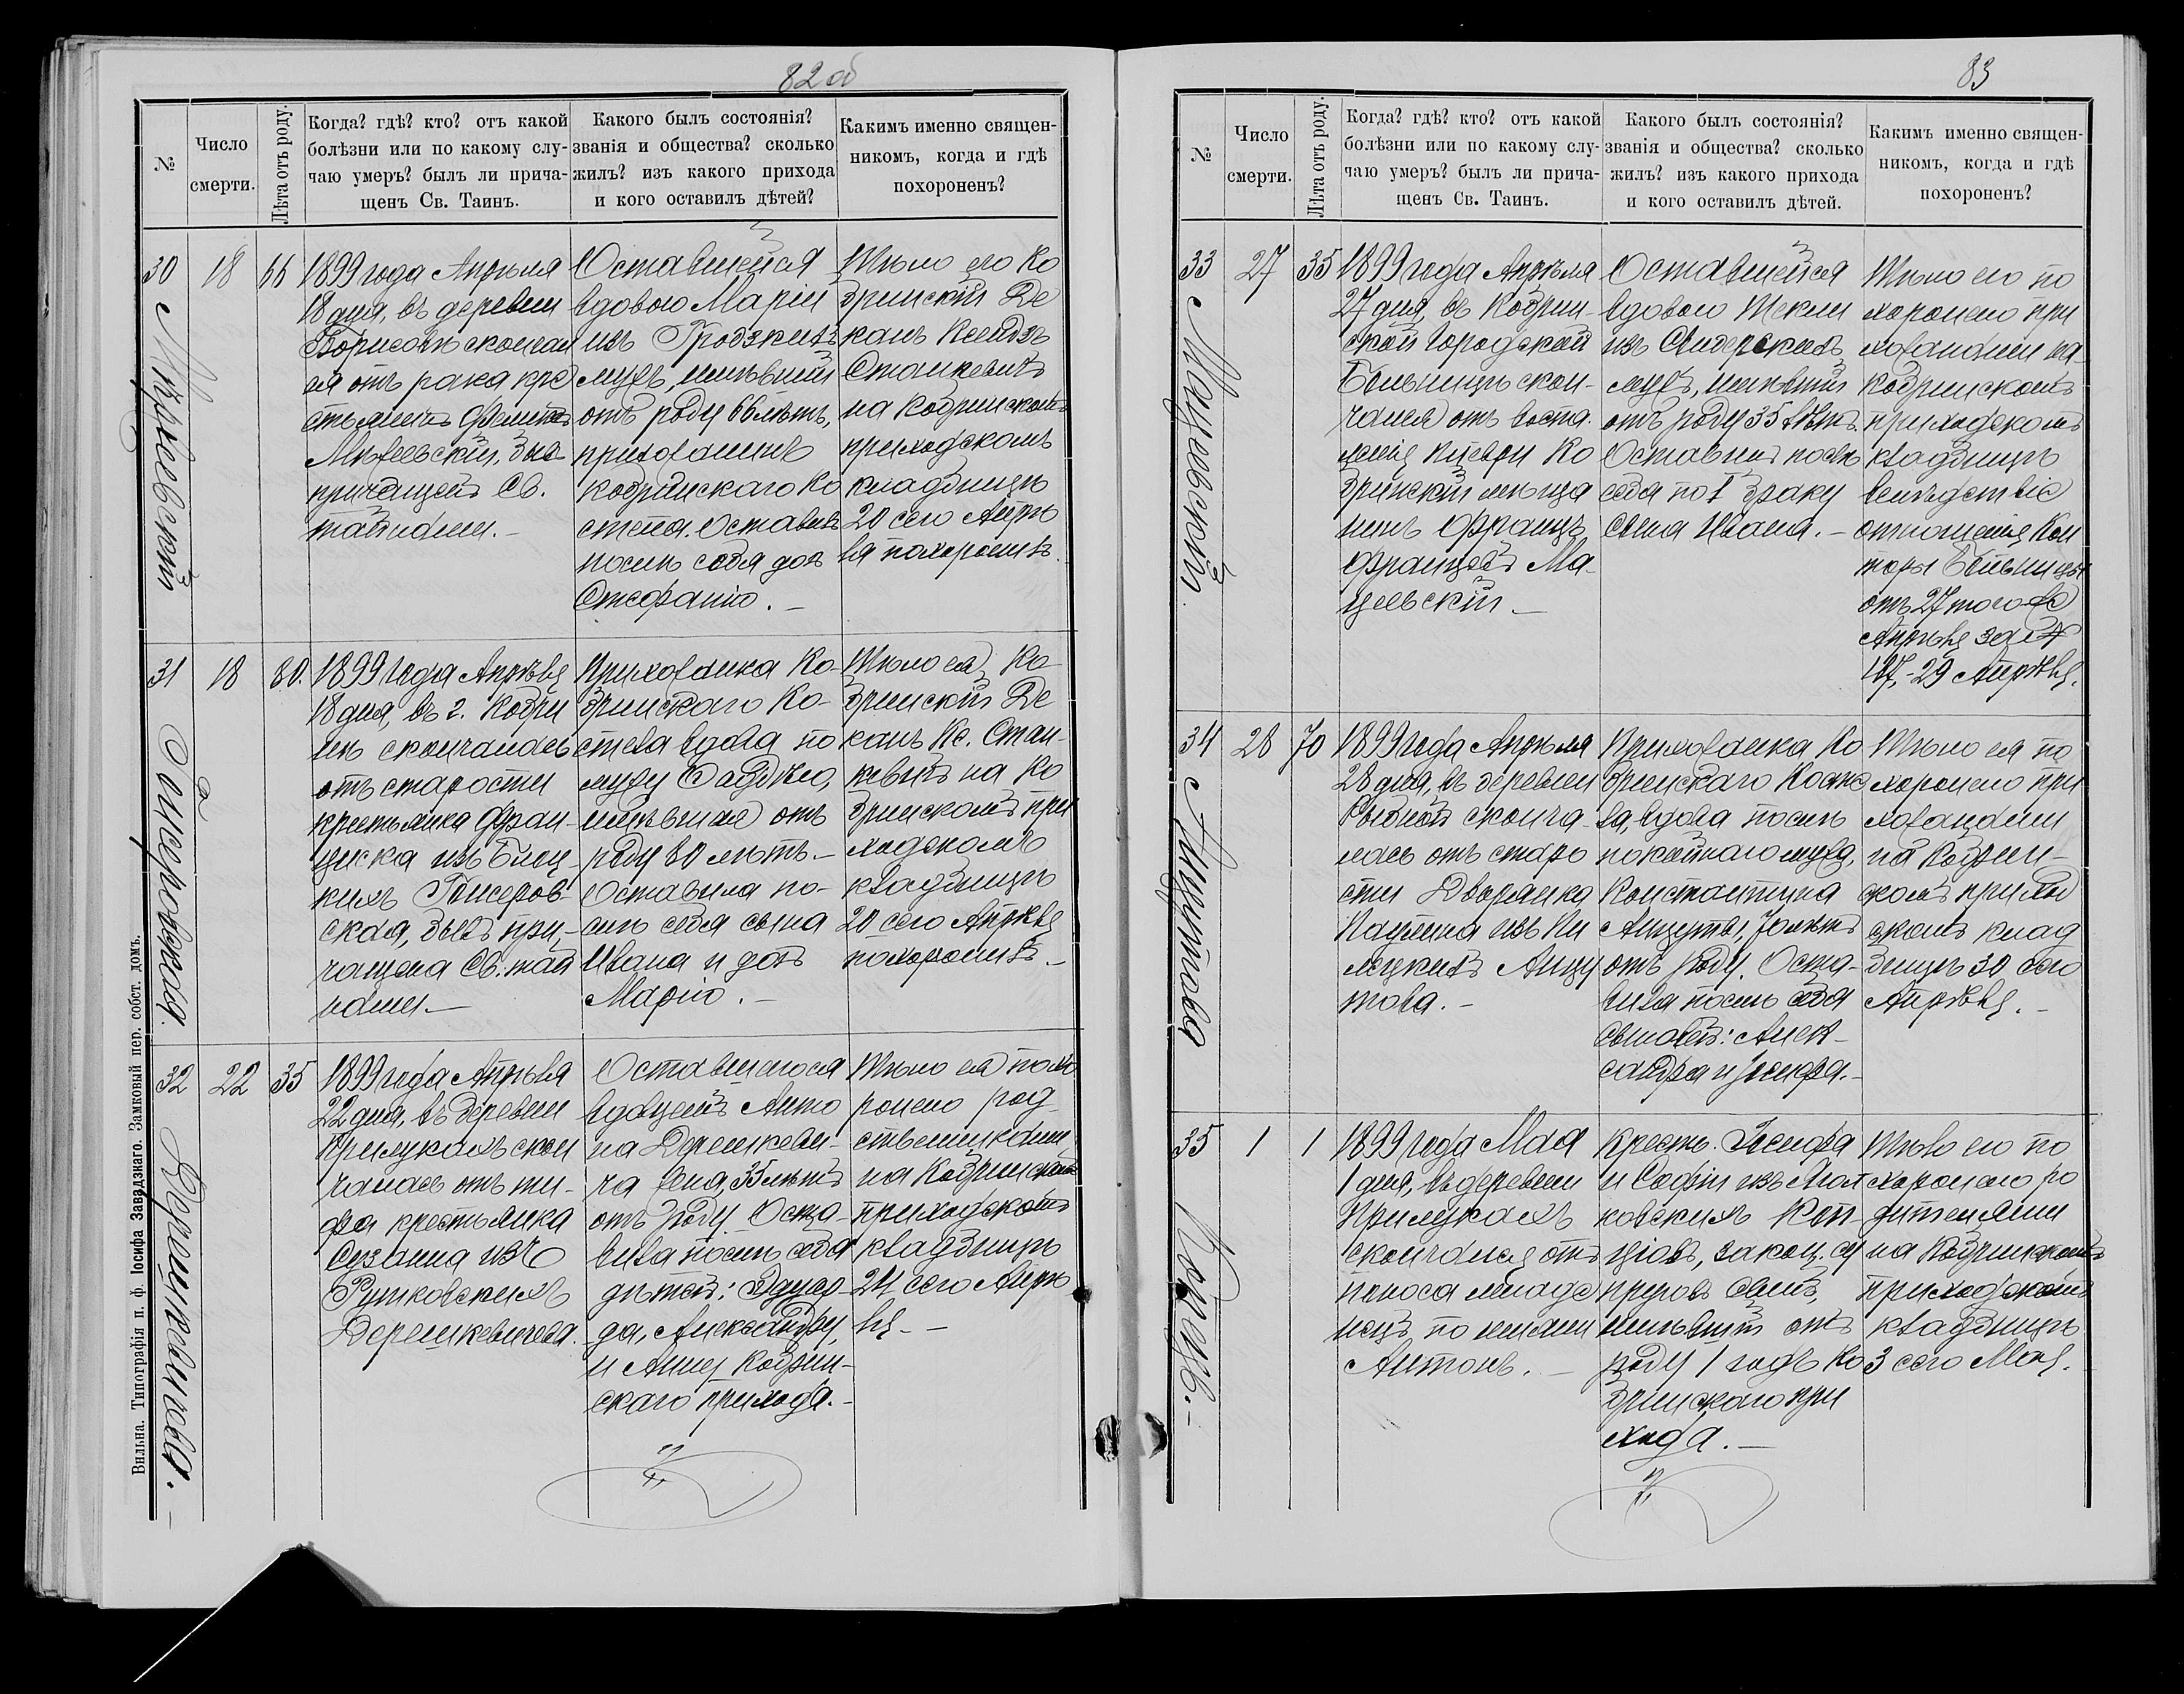 82 об
№
Число
смерти.
Лѣта отъ роду.
Когда? гдѣ? кто? отъ какой
болѣзни или по какому слу-
чаю умеръ? былъ ли прича-
щенъ Св. Таинъ.
Какого былъ состоянія?
званія и общества? сколько
жилъ? изъ какого прихода
и кого оставилъ дѣтей?
Какимъ именно священ-
никомъ, когда и гдѣ
похороненъ?
30
18
66
1899 года Апрѣля
18 дня, въ деревни
Борисовѣ скончал
ся отъ рака кре
стьянинъ
бывъ
причащенъ Св.
тайнами. -
Оставшейся
вдовою Маріи
изъ Гродзкихъ
мужъ, имѣвшій
отъ роду 66 лѣтъ,
прихожанинъ
Кобринскаго Ко
стела. Оставивъ
послѣ себя дочь
Стефанію. -
Тѣло его Ко
бринскій Де
канъ Ксендзъ
Станкевичъ
на Кобринскомъ
приходскомъ
кладбищѣ
20 сего Апрѣ
ля похоронилъ.
31
18
80.
1899 года Апрѣля
18 дня, въ г. Кобри
нѣ скончалась
отъ старости
крестьянка Фран-
циска изъ
кихъ Гисеров-
ская, бывъ при-
чащена Св. тай
нами. -
Прихожанка Ко-
бринскаго Ко-
стела вдова по
мужу
имѣвшая отъ
роду 80 лѣтъ. -
Оставила по-
слѣ себя сына
Ивана и дочь
Марію. -
Тѣло ея Ко
бринскій Де
канъ Кс. Стан-
кевичъ на Ко
бринскомъ при
ходскомъ
кладбищѣ
20 сего Апрѣля
похоронилъ. -
32
22
35
Деришкевичева. -
1899 года Апрѣля
22 дня, въ деревни
Прилукахъ скон
чалась отъ ти-
фа крестьянка
Сузанна изъ
Рутковскихъ
Деришкевичева.
Оставшагося
вдовцемъ Анто
на Деришкеви-
ча жена, 35 лѣтъ
отъ роду. Оста-
вила послѣ себя
дѣтей: Эдуар-
да, Александру,
и Анну Кобрин-
скаго прихода. -
Тѣло ея похо
ронено род
ственниками
на Кобринскомъ
приходскомъ
кладбищѣ
24 сего Апрѣ
ля. -
Вильна. Типографія п. ф. Іосифа Завадзкаго. Замковый пер. собст. домъ.
83
№
Число
смерти.
Лѣта отъ роду.
Когда? гдѣ? кто? отъ какой
болѣзни или по какому слу-
чаю умеръ? былъ ли прича-
щенъ Св. Таинъ.
Какого былъ состоянія?
званія и общества? сколько
жилъ? изъ какого прихода
и кого оставилъ дѣтей.
Какимъ именно священ-
никомъ, когда и гдѣ
похороненъ?
33
27
35
Мацеевскій.
1899 года Апрѣля
27 дня, въ Кобрин-
ской Городской
Больницѣ скон-
чался отъ воспа-
ленія Ко
бринскій мѣща
нинъ Францъ
Францевъ Ма-
цеевскій. -
Оставшейся
вдовою Текли
изъ Свидерскихъ
мужъ, имѣвшій
отъ роду 35 лѣтъ.
Оставилъ послѣ
себя по 1 браку
сына Ивана. -
Тѣло его по
хоронено при
хожанами на
Кобринскомъ
приходскомъ
кладбищѣ
вслѣдствіе
отношенія Кон
торы Больницы
отъ 27 того же
Апрѣля за №
187, - 29 Апрѣля.
34
28
70
Анцутова
1899 года Апрѣля
28 дня, въ деревни
Рыбной сконча-
лась отъ старо
сти Дворянка
Паулина изъ Ни
Анцу
това. -
Прихожанка Ко
бринскаго Косте
ла, вдова послѣ
покойнаго мужа
Константина
Анцуты, 70 лѣтъ
отъ роду. Оста-
вила послѣ себя
сыновей: Алек-
сандра и Іосифа. -
Тѣло ея по
хоронено при
хожанами
на Кобрин-
скомъ прихо
дскомъ клад
бищѣ 30 сего
Апрѣля. -
35
1
1
1899 года Мая
1 дня, въ деревни
Прилукахъ
скончался отъ
поноса младе
нецъ по имени
Антонъ. -
Крестьян. Іосифа
и Софіи изъ
ковскихъ Коп-
цювъ, закон. су
пруговъ сынъ,
имѣвшій отъ
роду 1 годъ Ко
бринскаго при
хода. -
Тѣло его по
хоронено ро
дителями
на Кобринскомъ
приходскомъ
кладбищѣ
3 сего Мая.